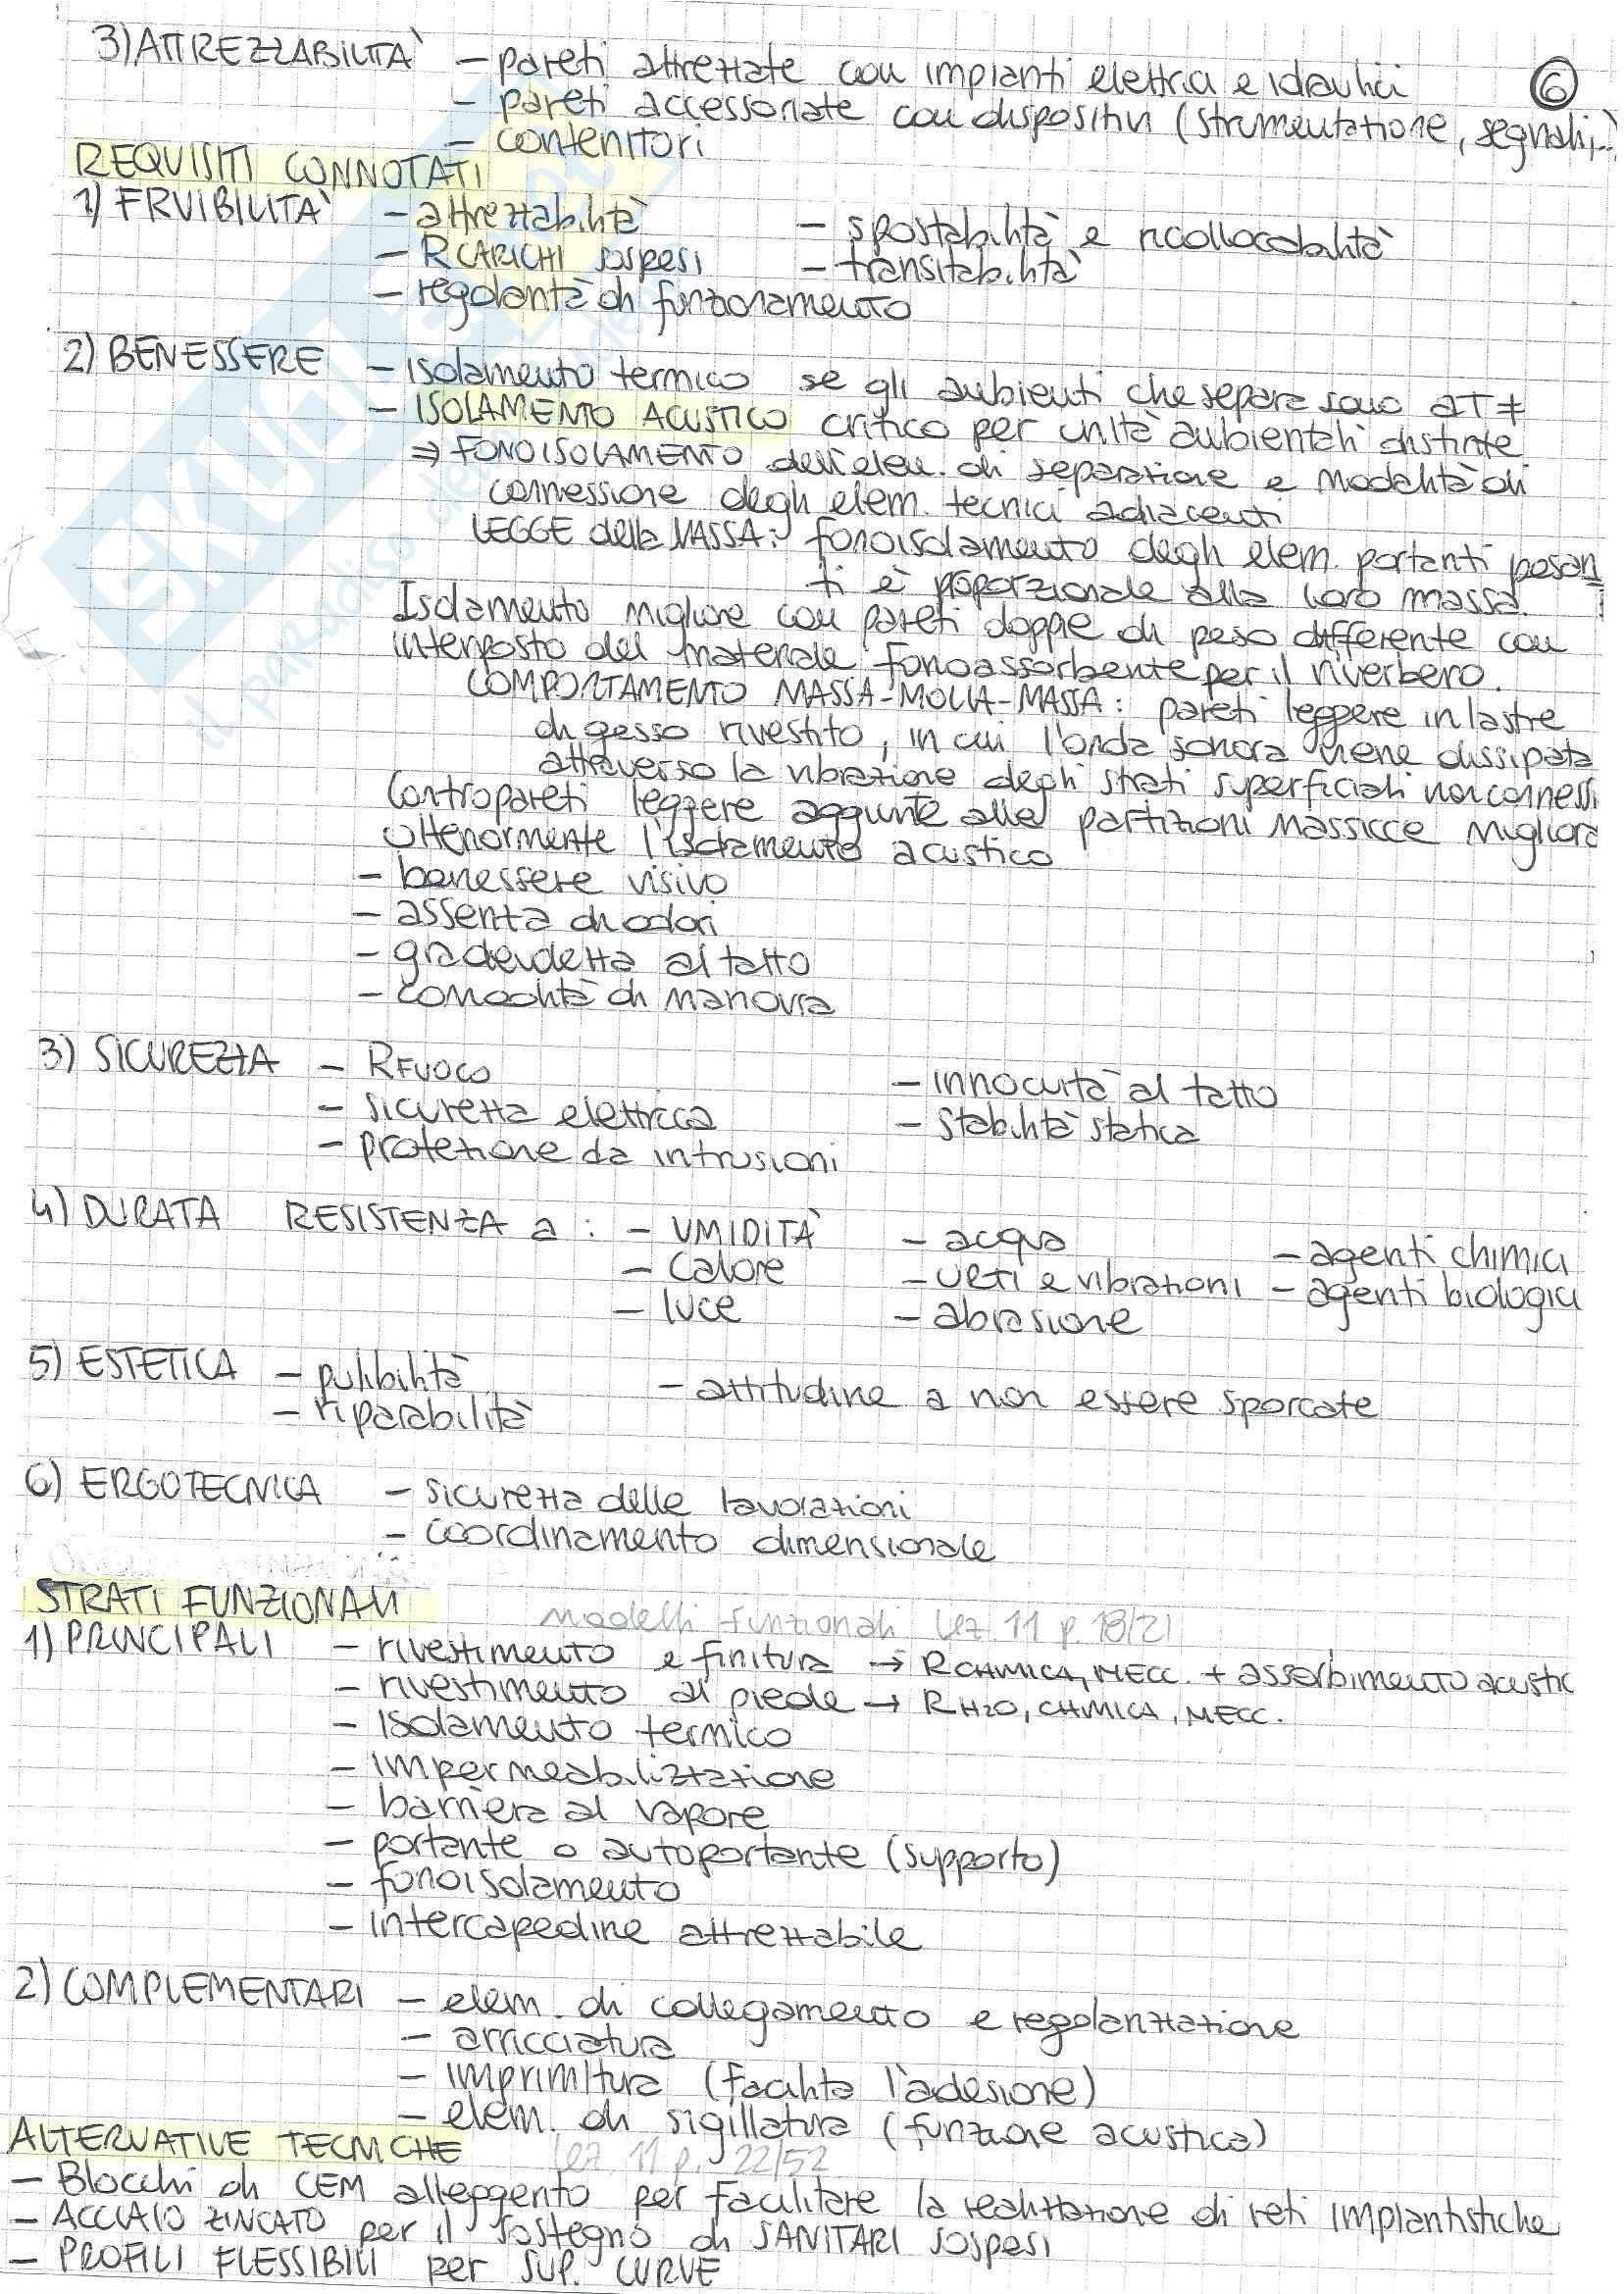 3) ATTREZZABILITÀ - pareti attrezzate con impianti elettrici e idraulici
6
- pareti accessoriate con dispositivi (strumentazione, segnali,..)
- contenitori
REQUISITI CONNOTATI
1) FRUIBILITÀ - attrezzabilità - spostabilità e ricollocabilità
- R CARICHI sospesi - transitabilità
- regolarità di funzionamento
2) BENESSERE - isolamento termico se gli ambienti che separa sono a T ≠
- ISOLAMENTO ACUSTICO critico per unità ambientali distinte
⇒ FONOISOLAMENTO dell'elem. di separazione e modalità di
connessione degli elem. tecnici adiacenti
LEGGE della MASSA: fonoisolamento degli elem. portanti pesan
ti è proporzionale alla loro massa.
Isolamento migliore con pareti doppie di peso differente con
interposto del materiale fonoassorbente per il riverbero.
COMPORTAMENTO MASSA-MOLLA-MASSA: pareti leggere in lastre
di gesso rivestito, in cui l'onda sonora viene dissipata
attraverso la vibrazione degli strati superficiali non connessi
Contropareti leggere aggiunte alle partizioni massicce migliora
ulteriormente l'isolamento acustico
- benessere visivo
- assenza di odori
- gradevolezza al tatto
- comodità di manovra
3) SICUREZZA - R FUOCO - innocuità al tatto
- sicurezza elettrica - stabilità statica
- protezione da intrusioni
4) DURATA RESISTENZA a : - UMIDITÀ - acqua - agenti chimici
- calore - urti e vibrazioni - agenti biologici
- luce - abrasione
5) ESTETICA - pulibilità - attitudine a non essere sporcate
- riparabilità
6) ERGOTECNICA - sicurezza delle lavorazioni
- coordinamento dimensionale
STRATI FUNZIONALI modelli funzionali lez. 11 p. 18/21
1) PRINCIPALI - rivestimento e finitura → R CHIMICA, MECC. + assorbimento acustic
- rivestimento al piede → R H2O, CHIMICA, MECC.
- isolamento termico
- impermeabilizzazione
- barriera al vapore
- portante o autoportante (supporto)
- fonoisolamento
- intercapedine attrezzabile
2) COMPLEMENTARI - elem. di collegamento e regolarizzazione
- arricciatura
- imprimitura (facilita l'adesione)
- elem. di sigillatura (funzione acustica)
ALTERNATIVE TECNICHE lez 11 p. 22/52
- Blocchi di CEM alleggerito per facilitare la realizzazione di reti impiantistiche
- ACCIAIO ZINCATO per il sostegno di SANITARI sospesi
- PROFILI FLESSIBILI per SUP. CURVE